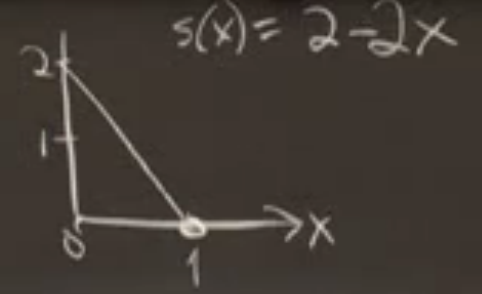 s(x) = 2-2x
2
1
0
1
x